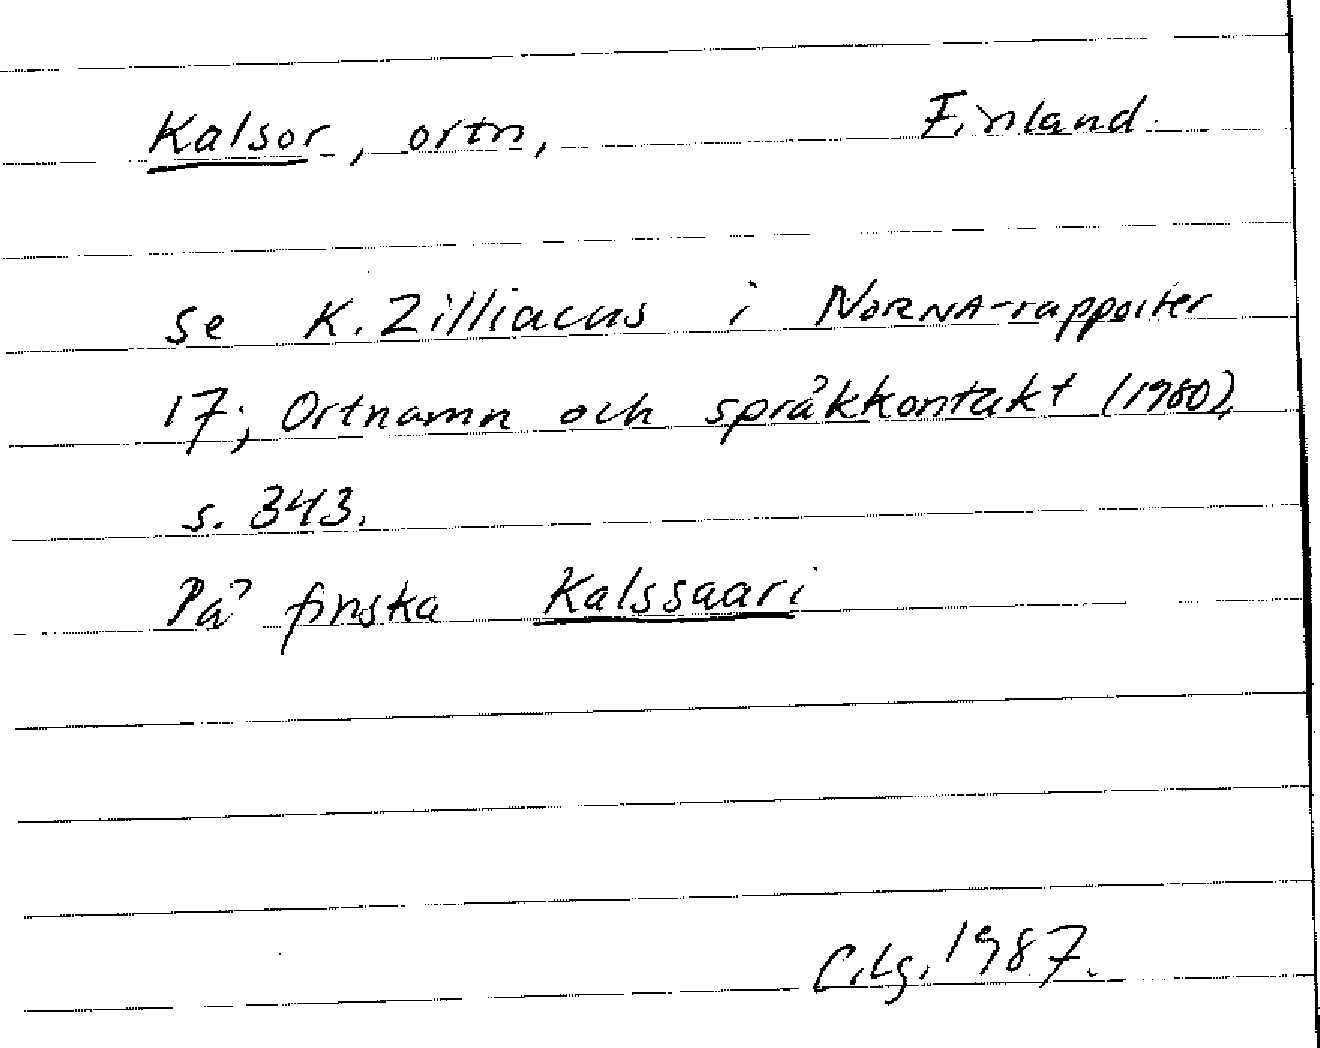 Kalsor, ortn, Finland.
se K. Zilliacus i NORNA-rapporter
17; Ortnamn och språkkontakt (1980),
s. 343.
På finska Kalssaari
C.Lg. 1987.